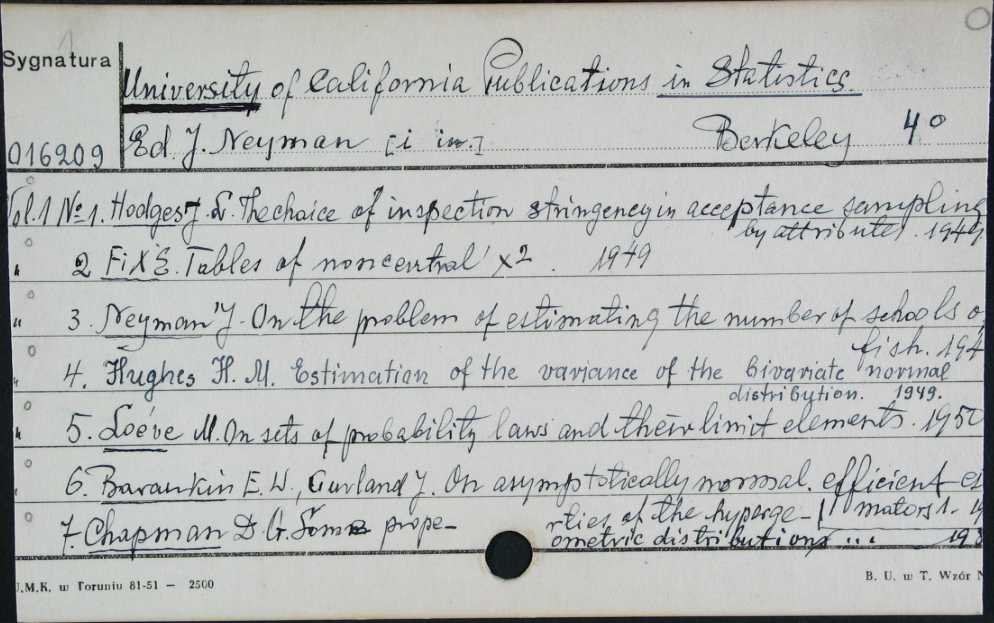 Sygnatura
University of California Publications in Statistics.
Ed. J. Neyman [i in.] Berkeley 4°
016209
Vol.1 № 1. Hodges J. L. The choice of inspection stringency in acceptance sampling
by attributes. 1949
" 2 Fix E. Tables of noncentral x2. 1949
" 3. Neyman J. On the problem of estimating the number of schools o
fish. 194
" 4. Hughes H. M. Estimation of the variance of the bivariate normal
distribution. 1949.
" 5. Loéve M. On sets of probability laws and their limit elements. 1950
" 6. Barankin E. W., Gurland J. On asymptotically normal. efficient es
7. Chapman D. G. Some prope- rties of the hyperge- mators 1. 19
ometric distributions ... 19
U.M.K. w Toruniu 81-51 — 2500
B. U. w T. Wzór N